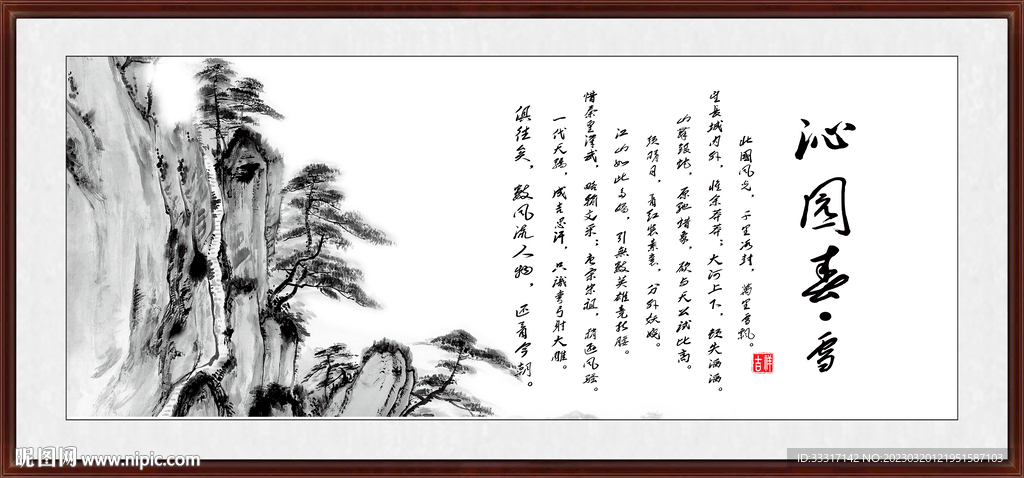 沁园春·雪
北國风光，千里冰封，萬里雪飘。
望长城内外，惟余莽莽；大河上下，顿失滔滔。
山舞银蛇，原驰蜡象，欲与天公试比高。
须晴日，看红装素裹，分外妖娆。
江山如此多娇，引無数英雄竞折腰。
惜秦皇汉武，略输文采；唐宗宋祖，稍逊风骚。
一代天骄，成吉思汗，只识弯弓射大雕。
俱往矣，数风流人物，还看今朝。
吉祥
昵图网 www.nipic.com
ID:33317142 NO.20230320121951587103